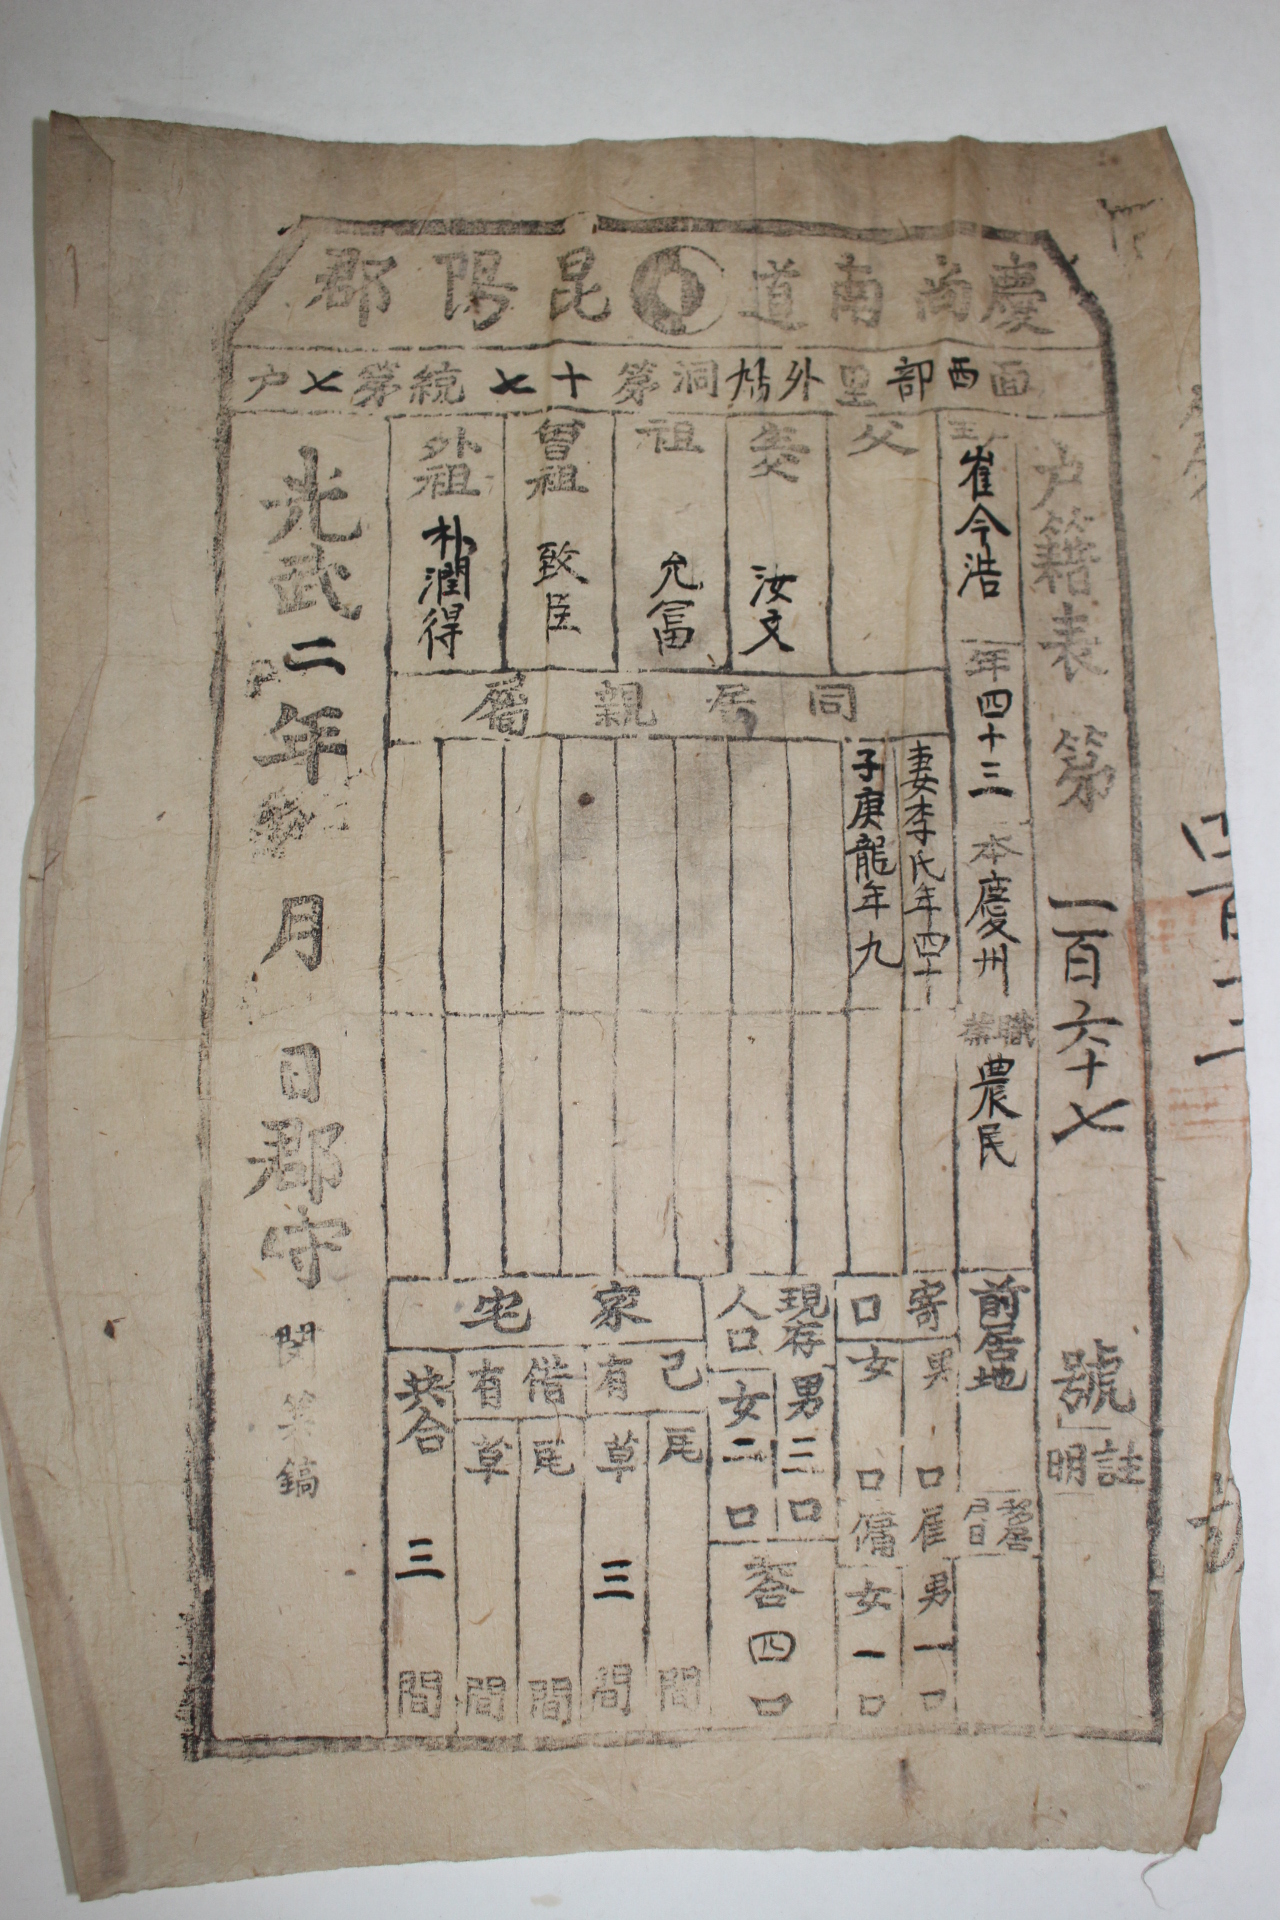 慶尚南道昆陽郡
面西部里外鳩洞第十七統第七户
户籍表 第一百六十七號
註明
主崔今浩 年四十三 本慶州 職業農民
前居地
移居月日
父
生父 汝文
祖 允富
曾祖 致臣
外祖 朴潤得
同居親屬
妻李氏年四十
子庚龍年九
寄口
男 口
女 口
雇傭
男一口
女一口
現存人口
男三口
女二口
共合四口
家宅
己有
瓦 間
草三間
借有
瓦 間
草 間
共合三間
光武二年 月 日郡守